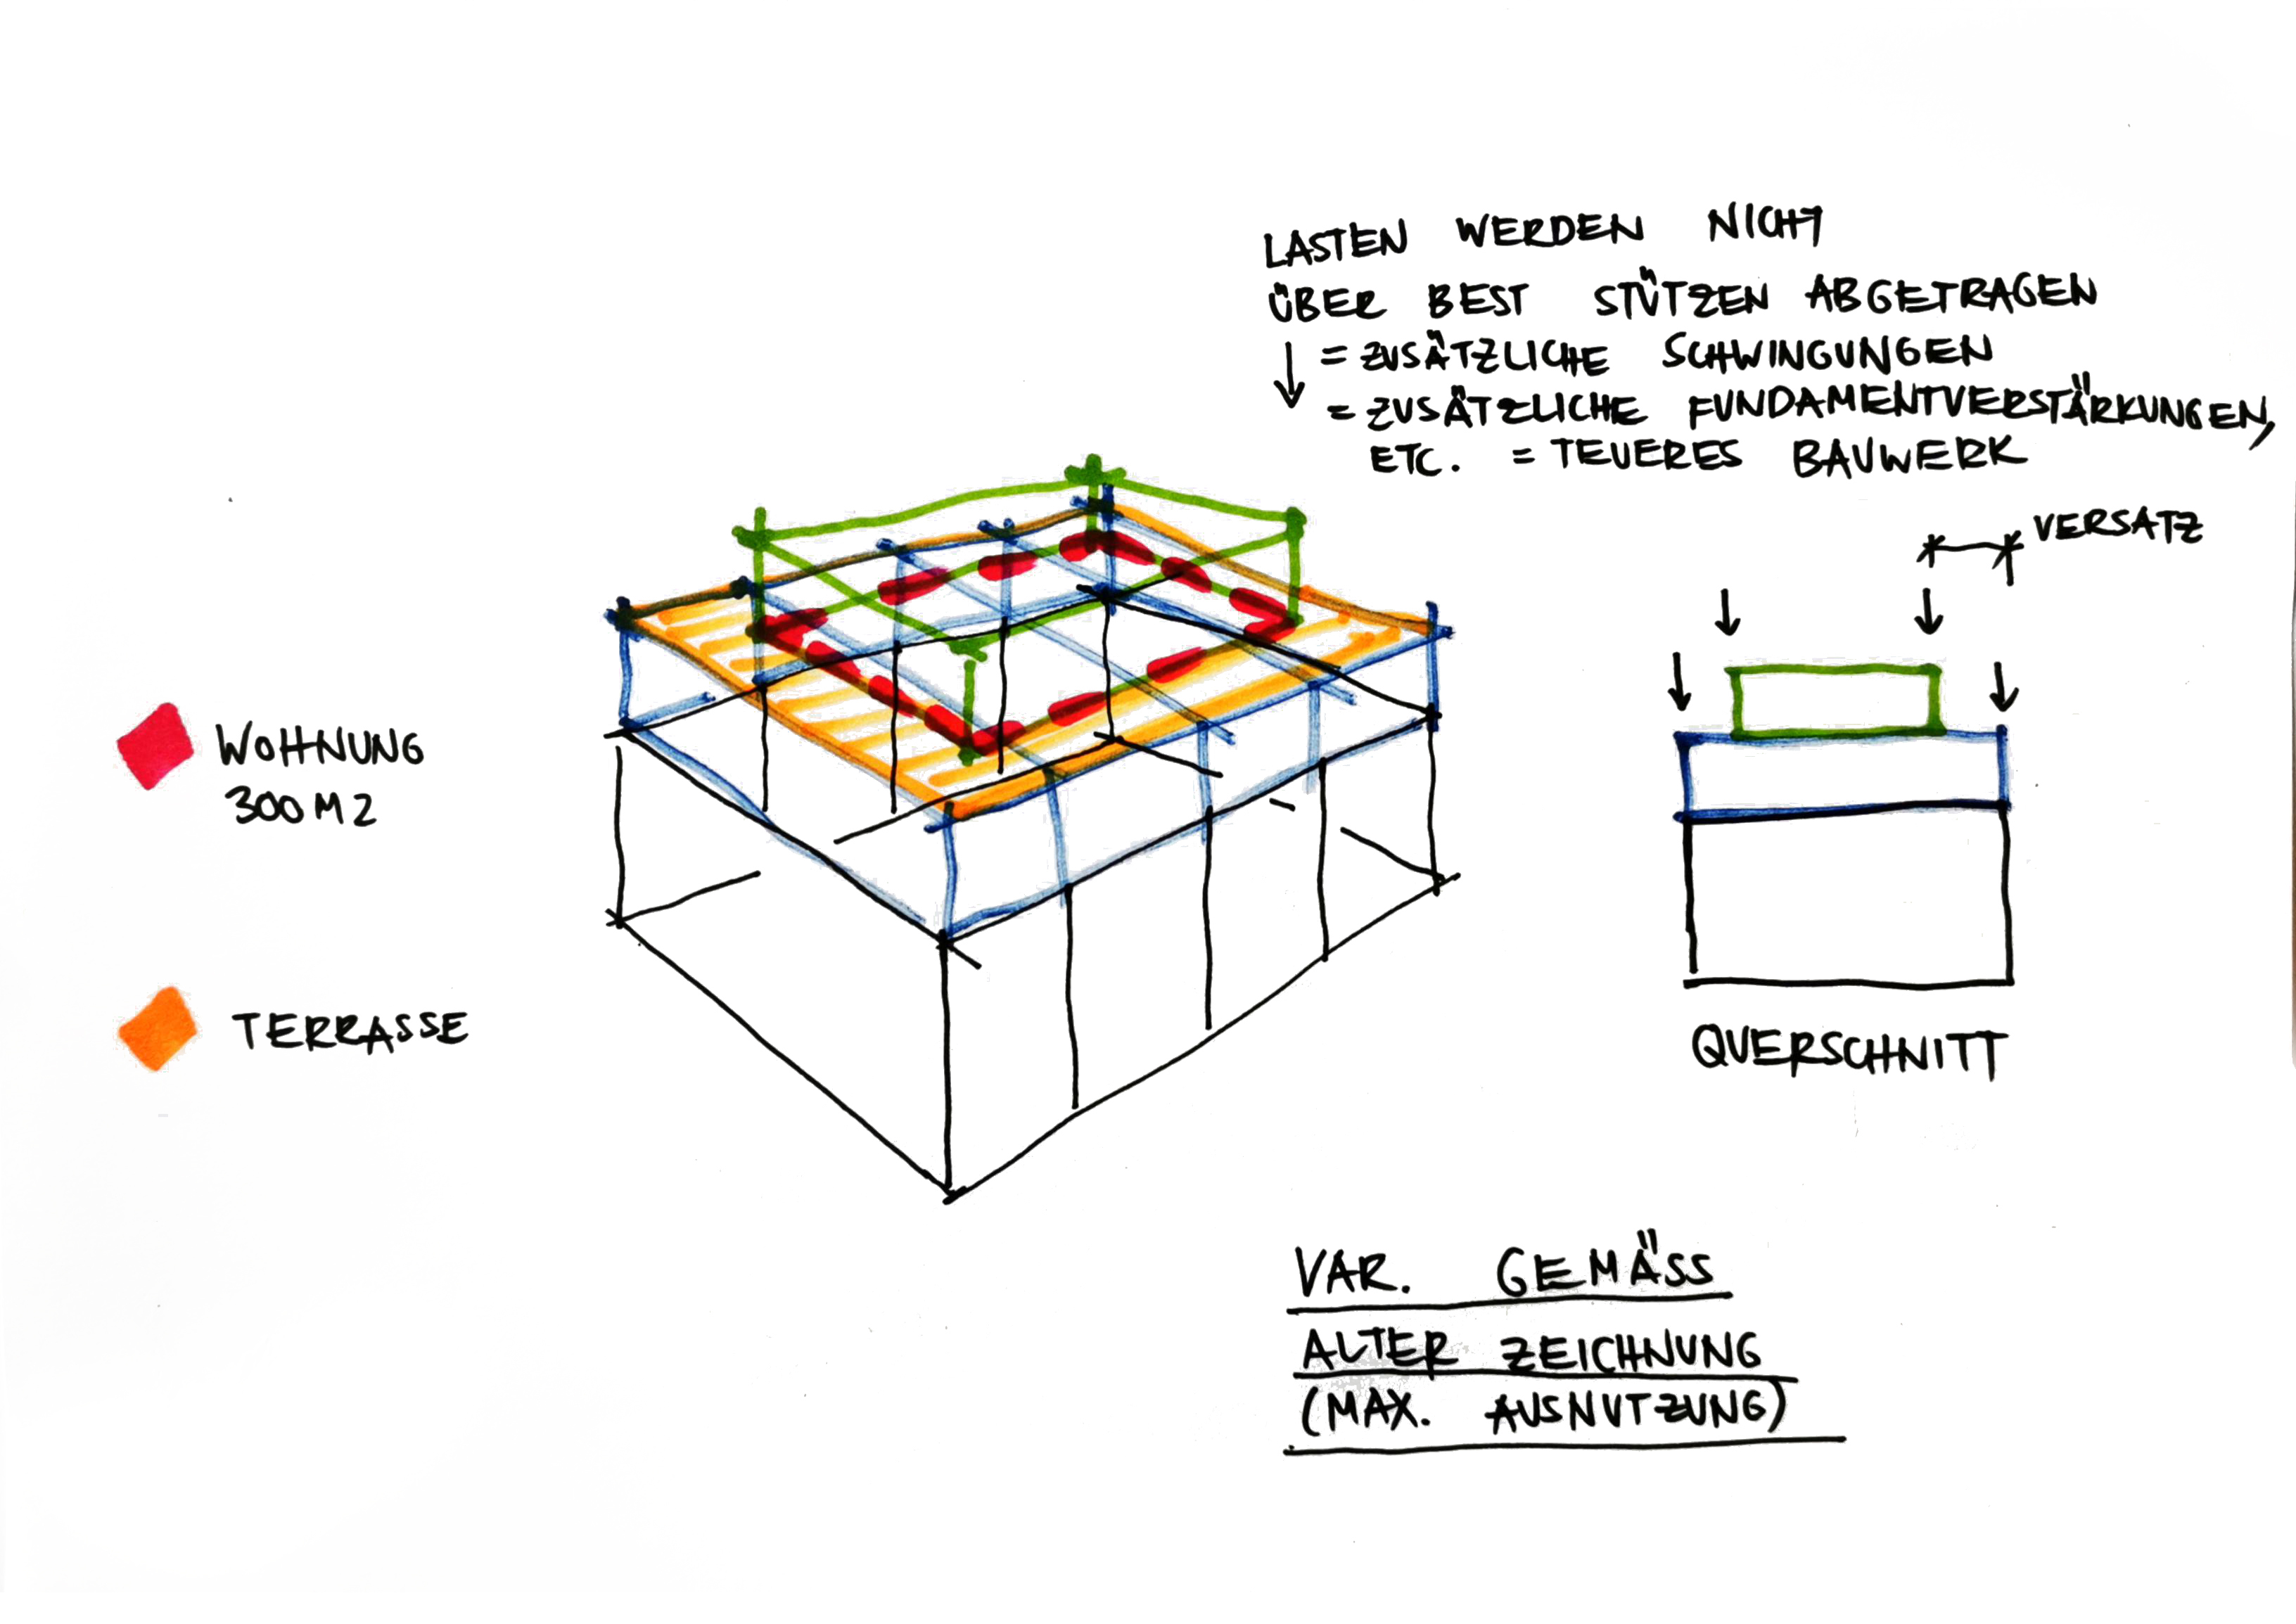 LASTEN WERDEN NICHT
ÜBER BEST STÜTZEN ABGETRAGEN
↓ = ZUSÄTZLICHE SCHWINGUNGEN
= ZUSÄTZLICHE FUNDAMENTVERSTÄRKUNGEN,
ETC. = TEUERES BAUWERK
VERSATZ
WOHNUNG
300 M2
TERRASSE
QUERSCHNITT
VAR. GEMÄSS
ALTER ZEICHNUNG
(MAX. AUSNUTZUNG)